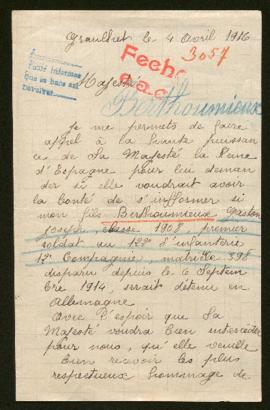 Graulhet le 4 Avril 1916
Fecho
3057
Majesté
Berthoumieux
Je me permets de faire
appel à la haute puissan
ce de Sa Majesté la Reine
d'Espagne pour lui deman
der si elle voudrait avoir
la bonté de s'informer si
mon fils Berthoumieux Gaston
Joseph, classe 1908, premier
soldat au 122e d'infanterie
12e Compagnie, matricule 398
disparu depuis le 6 Septem
bre 1914, serait détenu en
Allemagne
Avec l'espoir que Sa
Majesté voudra bien intercéder
pour nous, qu'elle veuille
bien recevoir les plus
respectueux hommage de